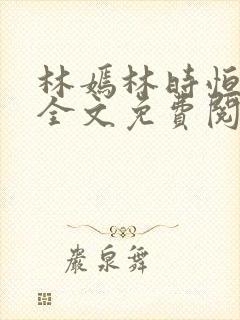 林嫣林時恒
全文免費閱
嚴泉舞